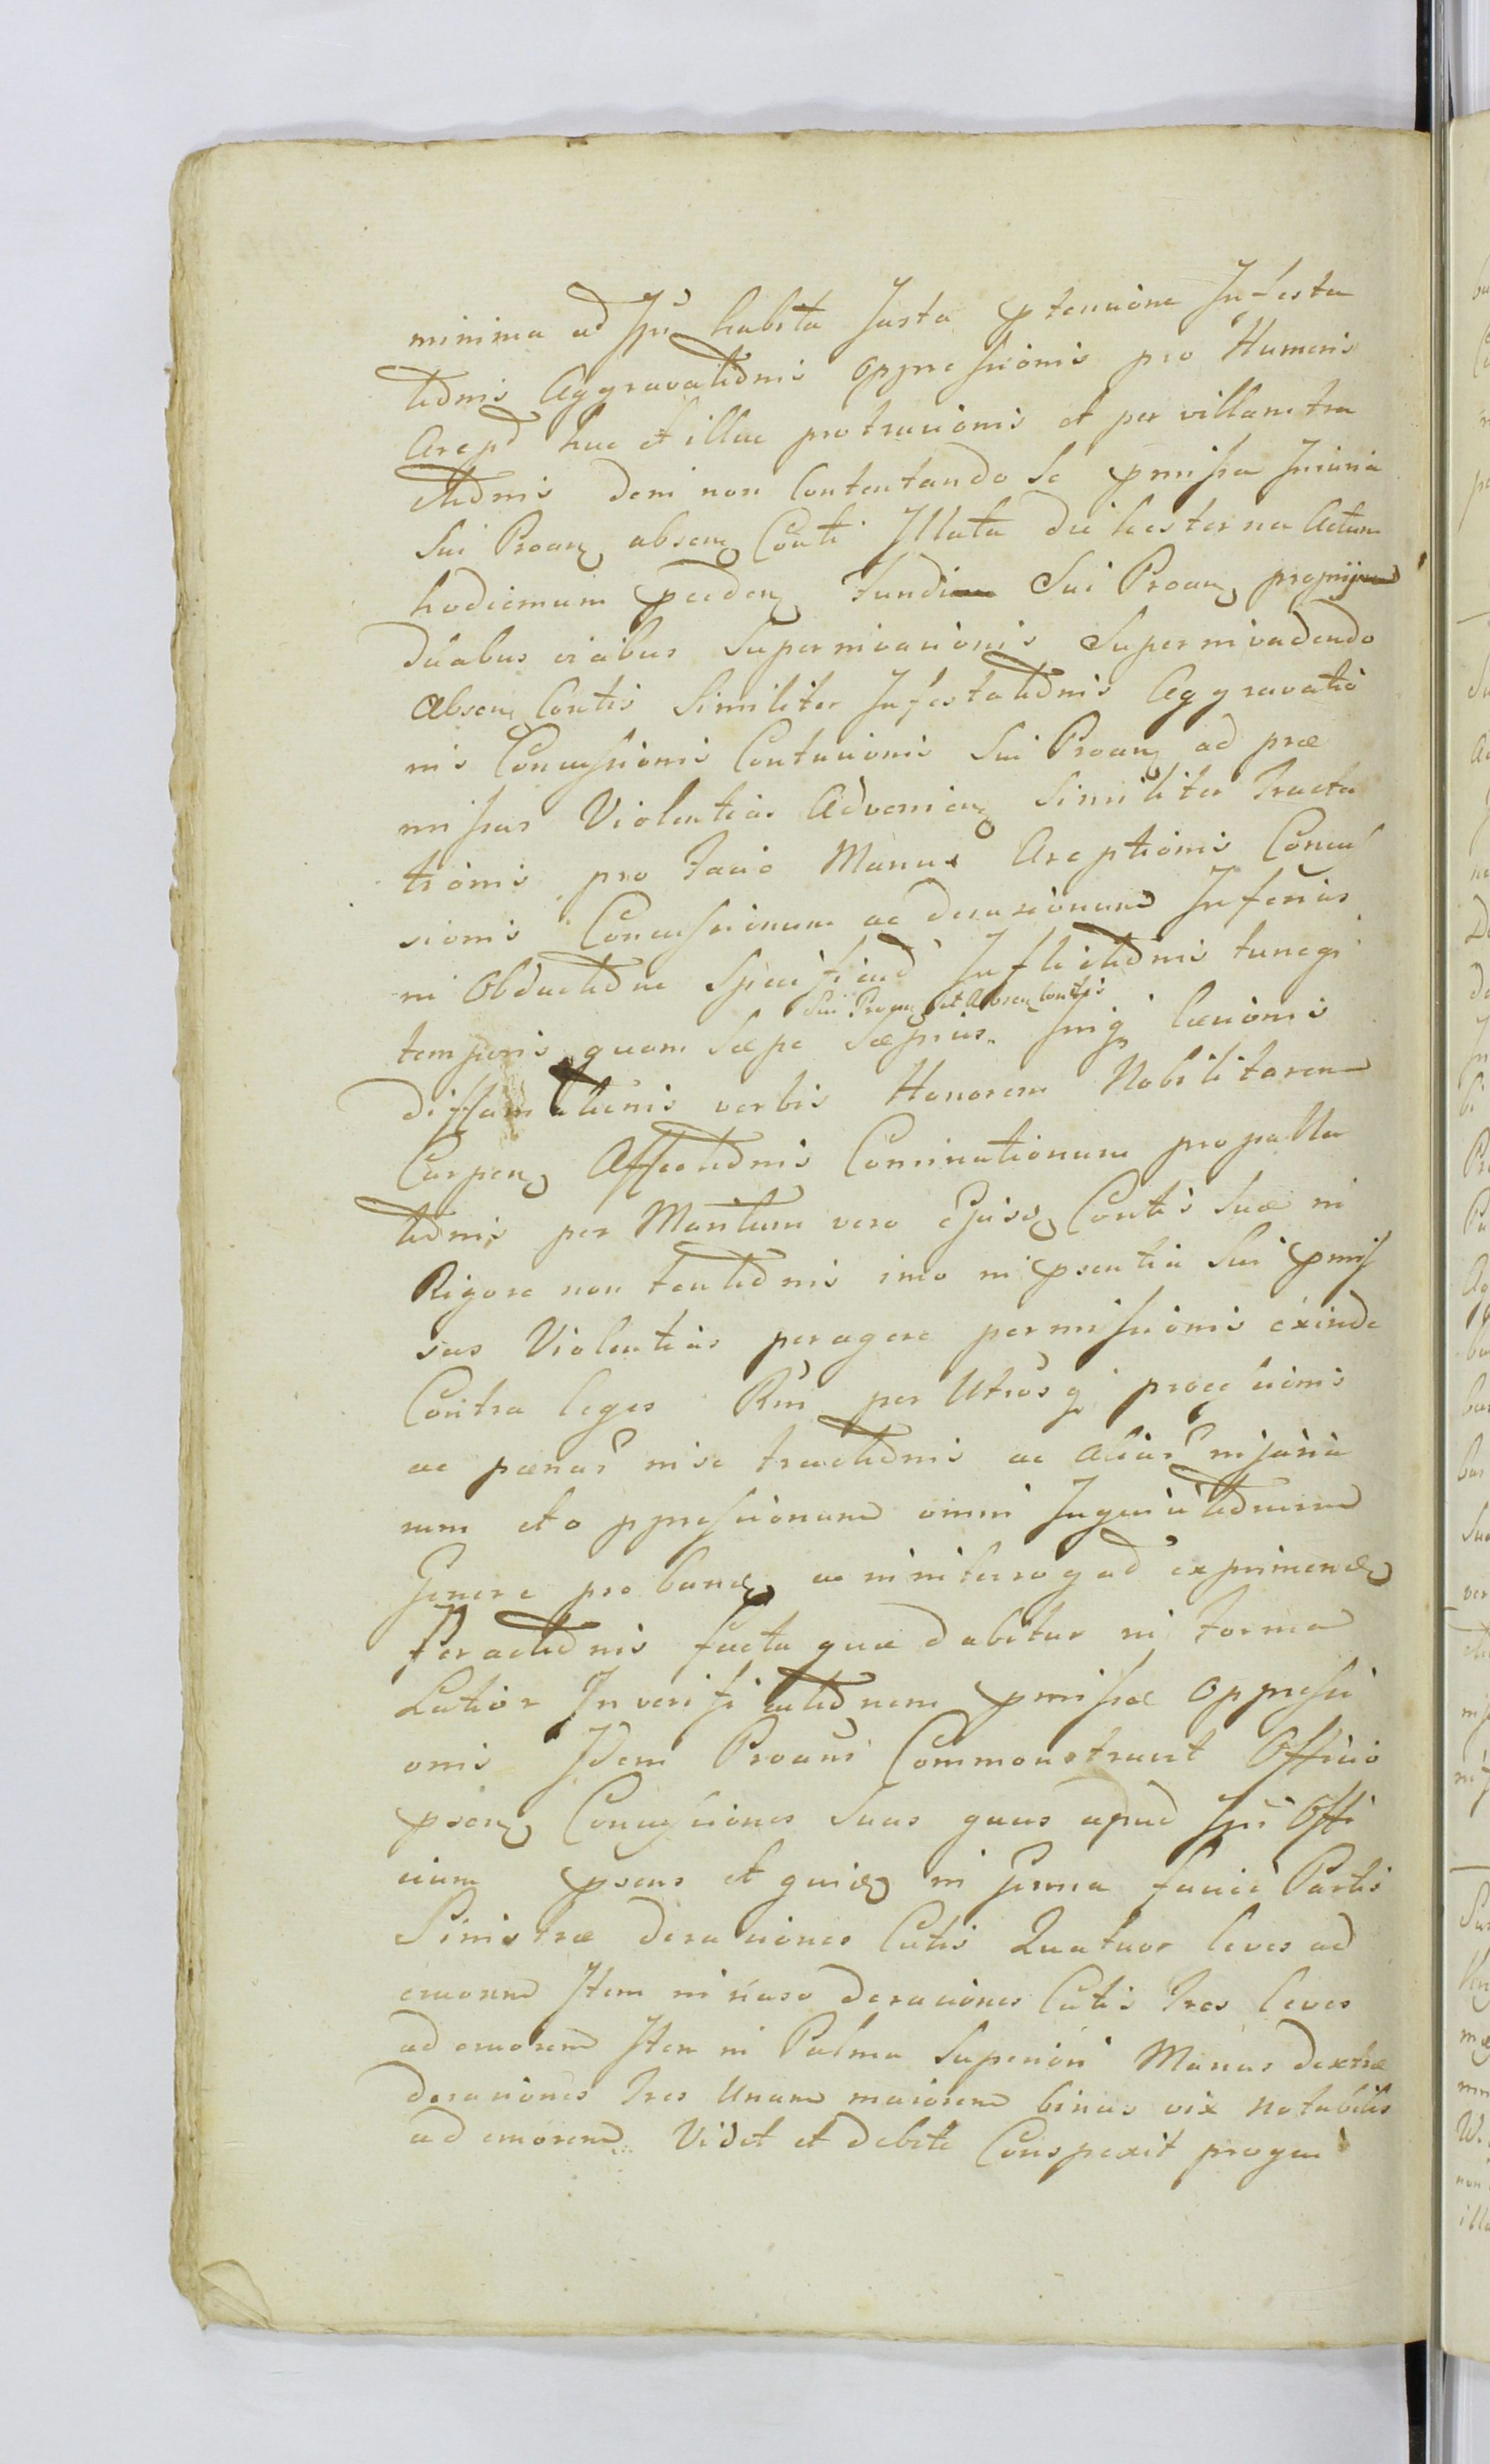 minima ad Ipm habita Justa ptensione Infesta
tidnis Aggravatidnis oppressionis pro Humeris
Arepd huc et illuc protrusionis et per villam tra
ctidnis dein non Contentando Se pmissa Iniuria
Sui Proan absen Conti Illata die hesterna Actum
hodiernum peeden Fundi Sui Proan
duabus vicibus Superinvasionis Superinvadendo
absen Contis Similiter Infestatidnis Aggravatio
nis Concussionis Contusionis Sui Proan ad præ
missas Violentias Advenien Similiter Tracta
tionis pro Facie Manus Areptionis Concu
sionis Concussionum ac derasionum Inferius
in Obductidne Specificand Inflictidnis tunc
temporis quam Sæpe Sæpius Sui Proan et Absen Contis læsionis
diffamationis verbis Honorem Nobilitarem
Carpen Affectidnis Cominationum propalla
tidnis per Maritum vero Ejusd Contis Suæ in
Rigore non tentidnis imo in psentia Sui pmis
sas Violentias peragere permissionis exinde
Contra leges Rni per Utrosq processionis
ac pænar inse tractidnis ac aliar injuria
rum et oppressionum omni Inquisitidnum
Genere proband ac in interrog ad exprimend
Peractidnis facta quæ dabitur in Forma
Latior In verificatidnem pmissæ Oppressi
onis Idem Proans Commonstravit Officio
psen Concussiones Suas quas apud Ipm Offi
cium psens et quid in Gena faciei Partis
Sinistræ derasiones Cutis Quatuor leves ad
cruorem Item in naso derasiones Cutis Tres leves
ad cruorem Item in Palma Superiori Manus dextræ
derasiones Tres Unam maiorem binas vix notabiles
ad cruorem Vidit et debite Conspexit proque